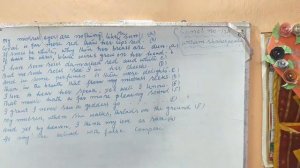 My mistress' eyes are nothing like sun; (A)
Coral is far more red than her lips' red (B)
If snow be white, why then her breasts are dun (A)
If hair be wires, black wires grow on her head (B)
I have seen roses damasked, red and white (C)
But no such roses see I in her cheeks (D)
And in some perfumes is there more delight (C)
Than in the breath that from my mistress reeks (D)
I love to hear her speak, yet well I know (E)
That music hath a far more pleasing sound (F)
I grant I never saw a goddess go (E)
My mistress, when she walks, treads on the ground (F)
And yet by heaven, I think my love as rare
As any she belied with false compare
Sonnet no
William Shakespeare